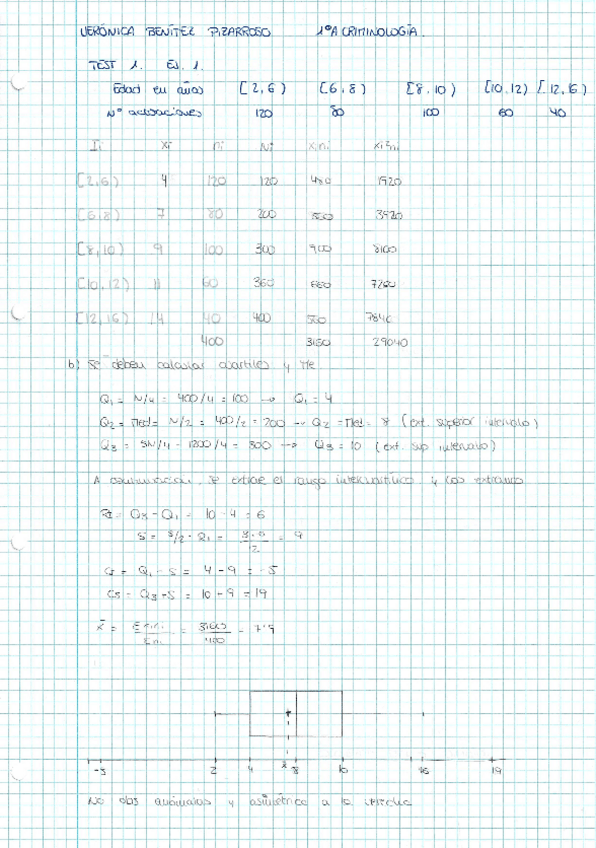 VERÓNICA BENÍTEZ PIZARROSO 1ºA CRIMINOLOGÍA.
TEST 1. EJ. 1.
Edad en años [2,6) [6,8) [8,10) [10,12) [12,16)
Nº actuaciones 120 80 100 60 40
Ii xi ni Ni xini xi²ni
[2,6) 4 120 120 480 1920
[6,8) 7 80 200 560 3920
[8,10) 9 100 300 900 8100
[10,12) 11 60 360 660 7260
[12,16) 14 40 400 560 7840
400 3160 29040
b) Se deben calcular cuartiles y Me
Q1 = N/4 = 400/4 = 100 → Q1 = 4
Q2 = Med = N/2 = 400/2 = 200 → Q2 = Med = 8 (ext. superior intervalo)
Q3 = 3N/4 = 1200/4 = 300 → Q3 = 10 (ext. sup intervalo)
A continuación, se extrae el rango intercuartílico y los extremos
= Q3 - Q1 = 10 - 4 = 6
S = 3/2 · = = 9
= Q1 - S = 4 - 9 = -5
CS = Q3 - S = 10 - 9 = 19
x̄ = Σxini / Σni = 3160 / 400 = 7'9
-5 2 4 x̄ 8 10 16 19
No obs anómalas y asimétrica a la derecha